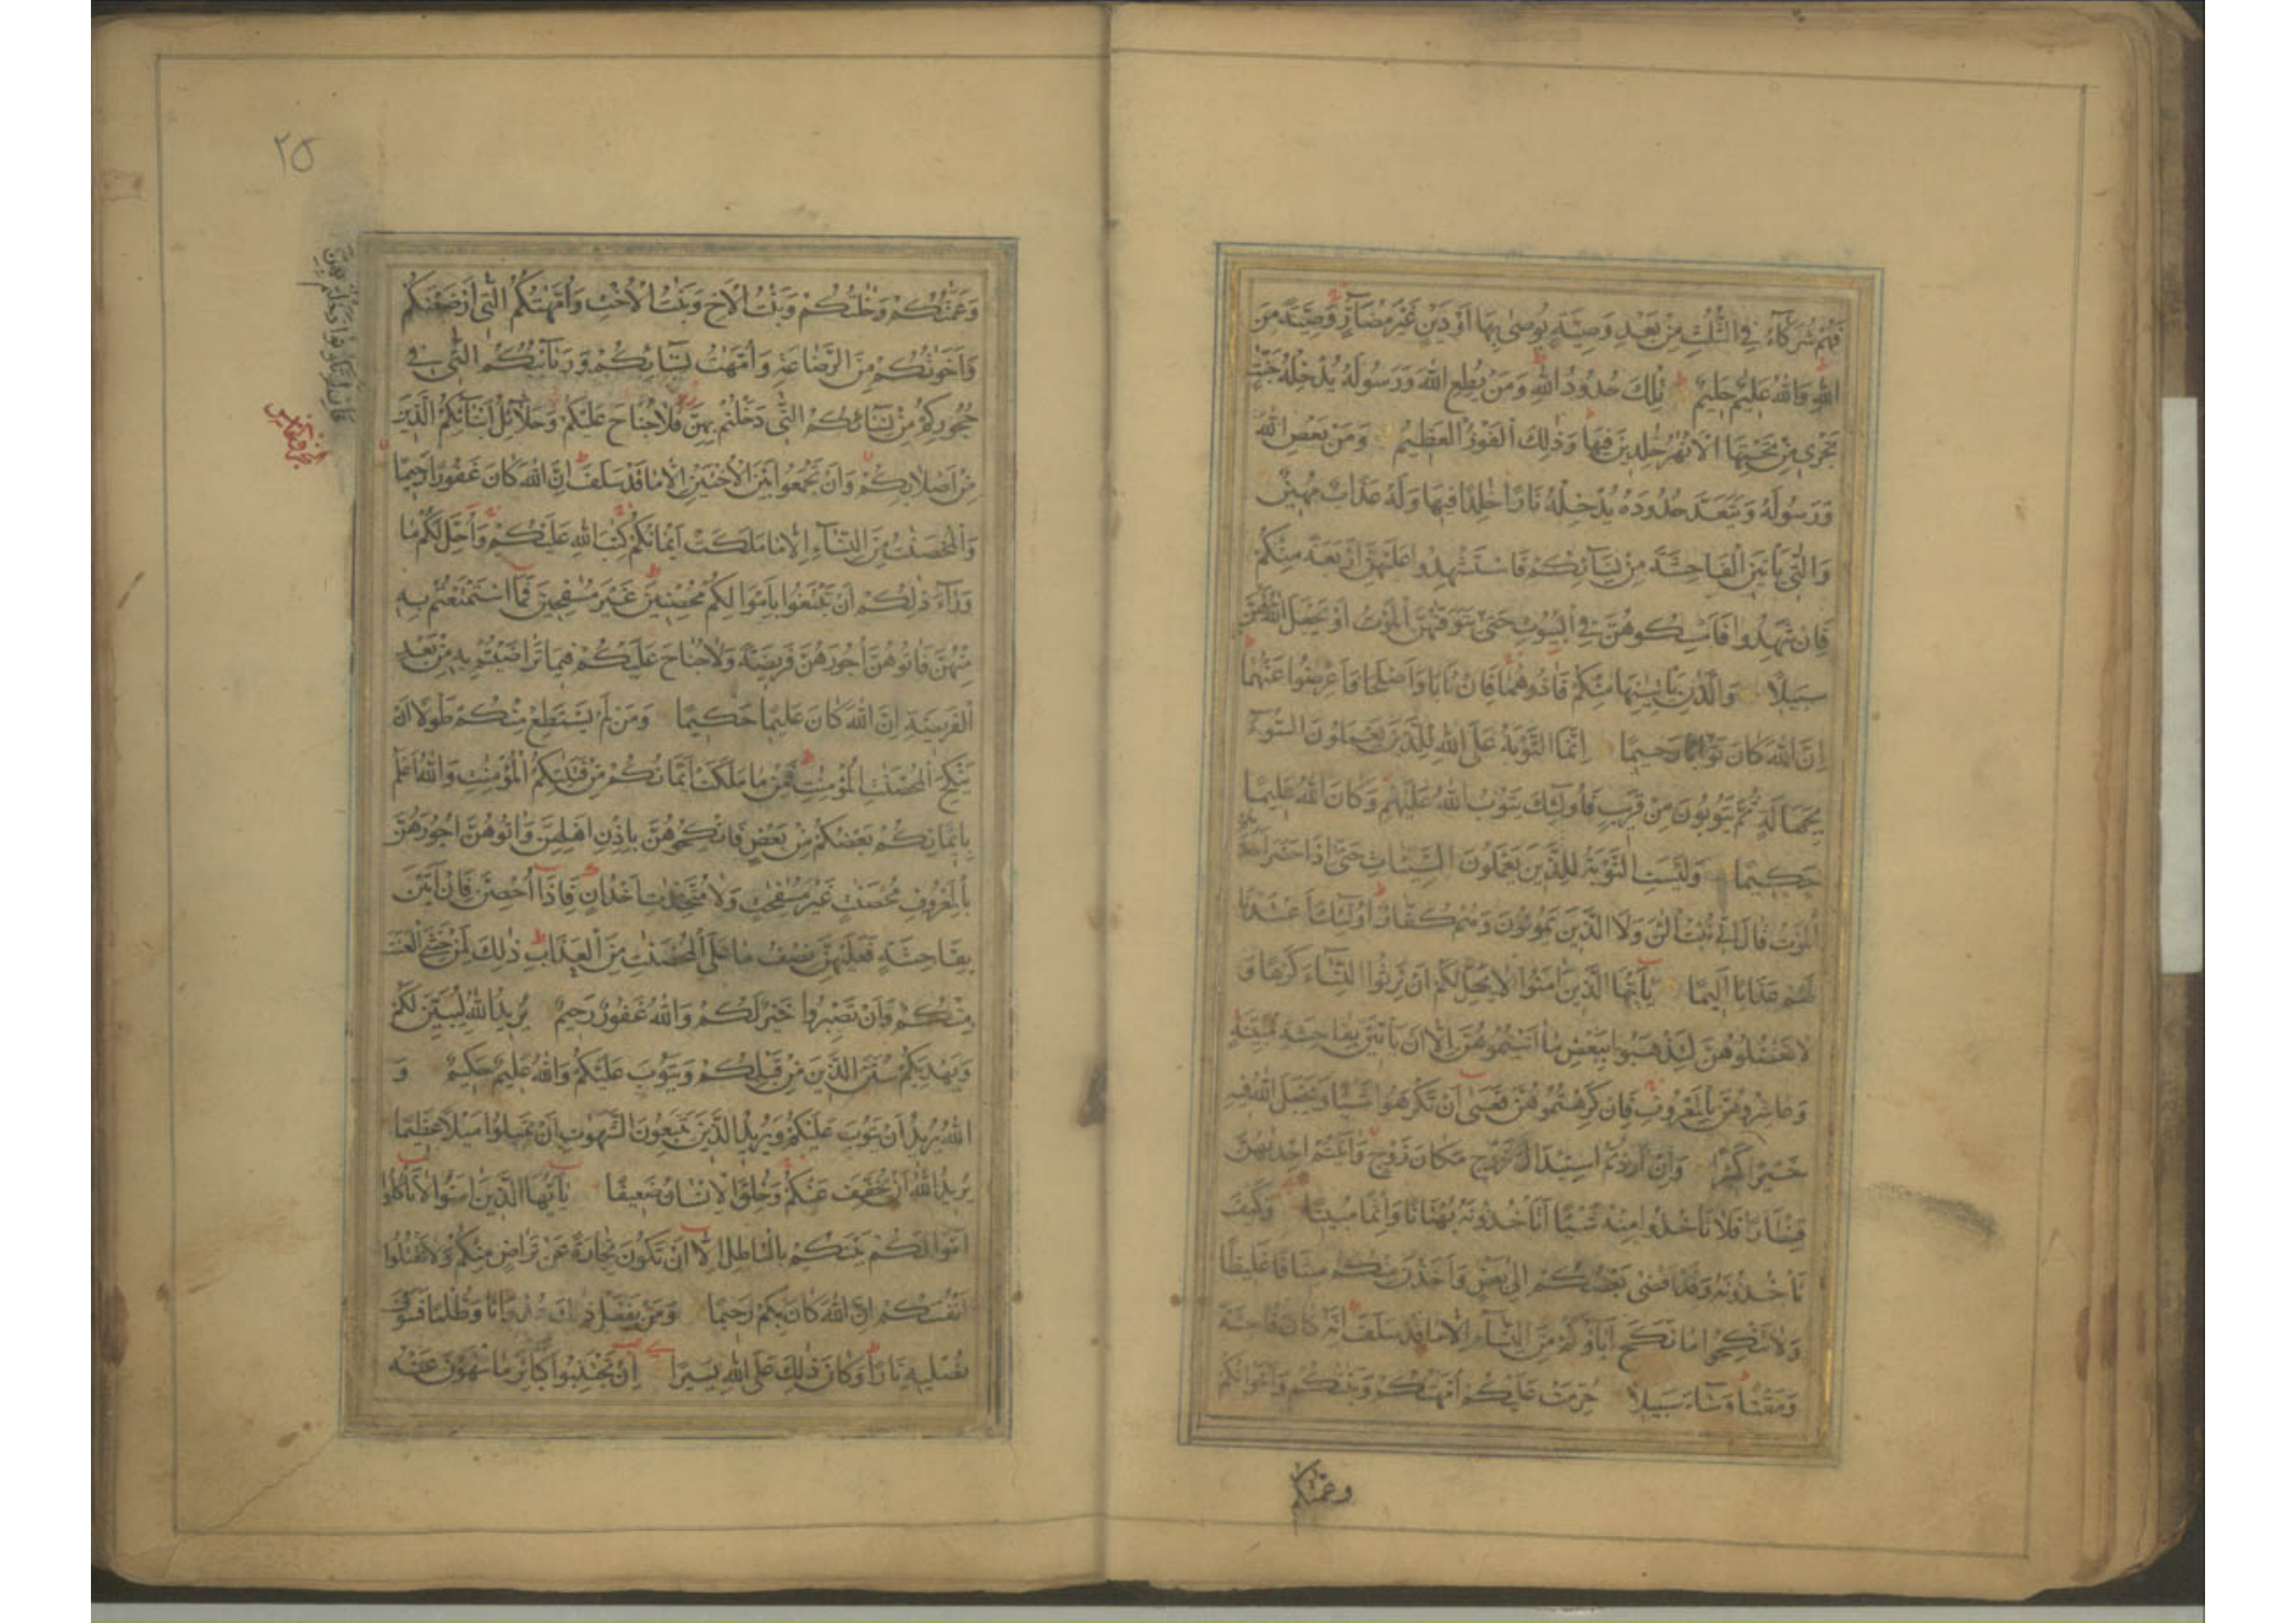 فَهُمْ شُرَكَآءُ فِي الثُّلُثِ مِنْ بَعْدِ وَصِيَّةٍ يُوصٰى بِهَا اَوْ دَيْنٍ غَيْرَ مُضَآرٍّ وَصِيَّةً مِنَ
اللّٰهِ وَاللّٰهُ عَلِيْمٌ حَلِيْمٌ تِلْكَ حُدُودُ اللّٰهِ وَمَنْ يُطِعِ اللّٰهَ وَرَسُولَهُ يُدْخِلْهُ جَنّٰتٍ
تَجْرِي مِنْ تَحْتِهَا الْاَنْهٰرُ خٰلِدِينَ فِيهَا وَذٰلِكَ الْفَوْزُ الْعَظِيْمُ وَمَنْ يَعْصِ اللّٰهَ
وَرَسُولَهُ وَيَتَعَدَّ حُدُودَهُ يُدْخِلْهُ نَارًا خٰلِدًا فِيهَا وَلَهُ عَذَابٌ مُهِينٌ
وَالّٰتِي يَاْتِينَ الْفَاحِشَةَ مِنْ نِسَآئِكُمْ فَاسْتَشْهِدُوا عَلَيْهِنَّ اَرْبَعَةً مِنْكُمْ
فَاِنْ شَهِدُوا فَاَمْسِكُوهُنَّ فِي الْبُيُوتِ حَتّٰى يَتَوَفّٰهُنَّ الْمَوْتُ اَوْ يَجْعَلَ اللّٰهُ لَهُنَّ
سَبِيلًا وَالَّذٰنِ يَاْتِيٰنِهَا مِنْكُمْ فَاٰذُوهُمَا فَاِنْ تَابَا وَاَصْلَحَا فَاَعْرِضُوا عَنْهُمَا
اِنَّ اللّٰهَ كَانَ تَوَّابًا رَحِيمًا اِنَّمَا التَّوْبَةُ عَلَى اللّٰهِ لِلَّذِينَ يَعْمَلُونَ السُّوٓءَ
بِجَهَالَةٍ ثُمَّ يَتُوبُونَ مِنْ قَرِيبٍ فَاُولٰٓئِكَ يَتُوبُ اللّٰهُ عَلَيْهِمْ وَكَانَ اللّٰهُ عَلِيمًا
حَكِيمًا وَلَيْسَتِ التَّوْبَةُ لِلَّذِينَ يَعْمَلُونَ السَّيِّاٰتِ حَتّٰى اِذَا حَضَرَ اَحَدَهُمُ
الْمَوْتُ قَالَ اِنِّي تُبْتُ الْـٰٔنَ وَلَا الَّذِينَ يَمُوتُونَ وَهُمْ كُفَّارٌ اُولٰٓئِكَ اَعْتَدْنَا
لَهُمْ عَذَابًا اَلِيمًا يٰٓاَيُّهَا الَّذِينَ اٰمَنُوا لَا يَحِلُّ لَكُمْ اَنْ تَرِثُوا النِّسَآءَ كَرْهًا وَ
لَا تَعْضُلُوهُنَّ لِتَذْهَبُوا بِبَعْضِ مَا اٰتَيْتُمُوهُنَّ اِلَّا اَنْ يَاْتِينَ بِفَاحِشَةٍ مُبَيِّنَةٍ
وَعَاشِرُوهُنَّ بِالْمَعْرُوفِ فَاِنْ كَرِهْتُمُوهُنَّ فَعَسٰى اَنْ تَكْرَهُوا شَيْئًا وَيَجْعَلَ اللّٰهُ فِيهِ
خَيْرًا كَثِيرًا وَاِنْ اَرَدْتُمُ اسْتِبْدَالَ زَوْجٍ مَكَانَ زَوْجٍ وَاٰتَيْتُمْ اِحْدٰىهُنَّ
قِنْطَارًا فَلَا تَاْخُذُوا مِنْهُ شَيْئًا اَتَاْخُذُونَهُ بُهْتَانًا وَاِثْمًا مُبِينًا وَكَيْفَ
تَاْخُذُونَهُ وَقَدْ اَفْضٰى بَعْضُكُمْ اِلٰى بَعْضٍ وَاَخَذْنَ مِنْكُمْ مِيثَاقًا غَلِيظًا
وَلَا تَنْكِحُوا مَا نَكَحَ اٰبَآؤُكُمْ مِنَ النِّسَآءِ اِلَّا مَا قَدْ سَلَفَ اِنَّهُ كَانَ فَاحِشَةً
وَمَقْتًا وَسَآءَ سَبِيلًا حُرِّمَتْ عَلَيْكُمْ اُمَّهٰتُكُمْ وَبَنٰتُكُمْ وَاَخَوٰتُكُمْ
وعمتكم
٢٥
وَعَمّٰتُكُمْ وَخٰلٰتُكُمْ وَبَنٰتُ الْاَخِ وَبَنٰتُ الْاُخْتِ وَاُمَّهٰتُكُمُ الّٰتِي اَرْضَعْنَكُمْ
وَاَخَوٰتُكُمْ مِنَ الرَّضَاعَةِ وَاُمَّهٰتُ نِسَآئِكُمْ وَرَبَآئِبُكُمُ الّٰتِي فِي
حُجُورِكُمْ مِنْ نِسَآئِكُمُ الّٰتِي دَخَلْتُمْ بِهِنَّ فَلَا جُنَاحَ عَلَيْكُمْ وَحَلَآئِلُ اَبْنَآئِكُمُ الَّذِينَ
مِنْ اَصْلَابِكُمْ وَاَنْ تَجْمَعُوا بَيْنَ الْاُخْتَيْنِ اِلَّا مَا قَدْ سَلَفَ اِنَّ اللّٰهَ كَانَ غَفُورًا رَحِيمًا
وَالْمُحْصَنٰتُ مِنَ النِّسَآءِ اِلَّا مَا مَلَكَتْ اَيْمَانُكُمْ كِتٰبَ اللّٰهِ عَلَيْكُمْ وَاُحِلَّ لَكُمْ مَا
وَرَآءَ ذٰلِكُمْ اَنْ تَبْتَغُوا بِاَمْوَالِكُمْ مُحْصِنِينَ غَيْرَ مُسٰفِحِينَ فَمَا اسْتَمْتَعْتُمْ بِهِ
مِنْهُنَّ فَاٰتُوهُنَّ اُجُورَهُنَّ فَرِيضَةً وَلَا جُنَاحَ عَلَيْكُمْ فِيمَا تَرٰضَيْتُمْ بِهِ مِنْ بَعْدِ
الْفَرِيضَةِ اِنَّ اللّٰهَ كَانَ عَلِيمًا حَكِيمًا وَمَنْ لَمْ يَسْتَطِعْ مِنْكُمْ طَوْلًا اَنْ
يَنْكِحَ الْمُحْصَنٰتِ الْمُؤْمِنٰتِ فَمِنْ مَا مَلَكَتْ اَيْمَانُكُمْ مِنْ فَتَيٰتِكُمُ الْمُؤْمِنٰتِ وَاللّٰهُ اَعْلَمُ
بِاِيمَانِكُمْ بَعْضُكُمْ مِنْ بَعْضٍ فَانْكِحُوهُنَّ بِاِذْنِ اَهْلِهِنَّ وَاٰتُوهُنَّ اُجُورَهُنَّ
بِالْمَعْرُوفِ مُحْصَنٰتٍ غَيْرَ مُسٰفِحٰتٍ وَلَا مُتَّخِذٰتِ اَخْدَانٍ فَاِذَا اُحْصِنَّ فَاِنْ اَتَيْنَ
بِفَاحِشَةٍ فَعَلَيْهِنَّ نِصْفُ مَا عَلَى الْمُحْصَنٰتِ مِنَ الْعَذَابِ ذٰلِكَ لِمَنْ خَشِيَ الْعَنَتَ
مِنْكُمْ وَاَنْ تَصْبِرُوا خَيْرٌ لَكُمْ وَاللّٰهُ غَفُورٌ رَحِيمٌ يُرِيدُ اللّٰهُ لِيُبَيِّنَ لَكُمْ
وَيَهْدِيَكُمْ سُنَنَ الَّذِينَ مِنْ قَبْلِكُمْ وَيَتُوبَ عَلَيْكُمْ وَاللّٰهُ عَلِيمٌ حَكِيمٌ وَ
اللّٰهُ يُرِيدُ اَنْ يَتُوبَ عَلَيْكُمْ وَيُرِيدُ الَّذِينَ يَتَّبِعُونَ الشَّهَوٰتِ اَنْ تَمِيلُوا مَيْلًا عَظِيمًا
يُرِيدُ اللّٰهُ اَنْ يُخَفِّفَ عَنْكُمْ وَخُلِقَ الْاِنْسَانُ ضَعِيفًا يٰٓاَيُّهَا الَّذِينَ اٰمَنُوا لَا تَاْكُلُوا
اَمْوَالَكُمْ بَيْنَكُمْ بِالْبَاطِلِ اِلَّا اَنْ تَكُونَ تِجَارَةً عَنْ تَرَاضٍ مِنْكُمْ وَلَا تَقْتُلُوا
اَنْفُسَكُمْ اِنَّ اللّٰهَ كَانَ بِكُمْ رَحِيمًا وَمَنْ يَفْعَلْ ذٰلِكَ عُدْوَانًا وَظُلْمًا فَسَوْفَ
نُصْلِيهِ نَارًا وَكَانَ ذٰلِكَ عَلَى اللّٰهِ يَسِيرًا اِنْ تَجْتَنِبُوا كَبَآئِرَ مَا تُنْهَوْنَ عَنْهُ
فَاِنْ لَمْ تَكُونُوا دَخَلْتُمْ بِهِنَّ